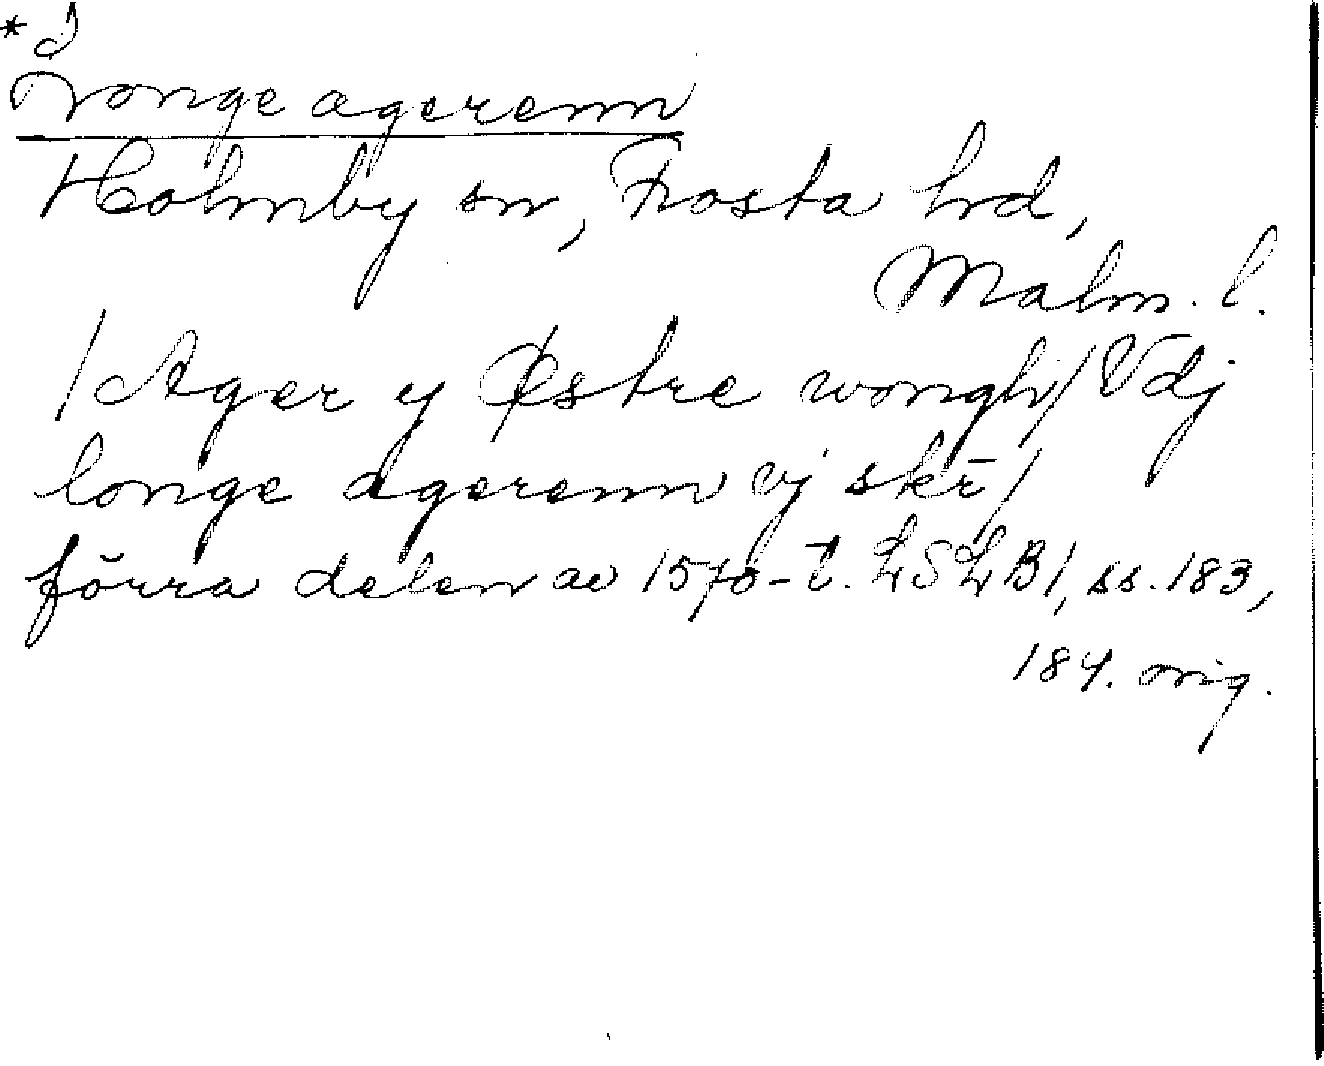 * I
Tronge agerenn
Holmby sn, Frosta hd,
Malm. l.
/Ager y Østre wongh/ Vdj
longe agerenn vj skr̄/
förra delen av 1570-t. LSLB1, ss. 183,
184. orig.